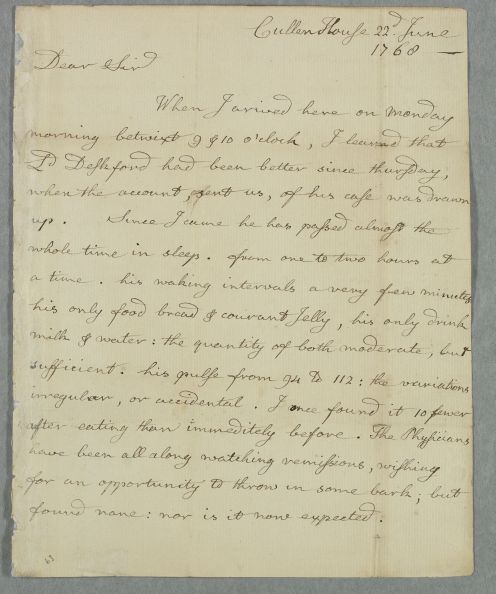 Cullen House 22d June
1768
Dear Sir
When I arived here on monday
morning betwixt 9 & 10 o'clock, I learned that
Ld Deskford had been better since thursday,
when the account, sent us, of his case was drawn
up. Since I came he has passed almost the
whole time in sleep. from one to two hours at
a time. his waking intervals a very few minutes
his only food bread & courant Jelly, his only drink
milk & water: the quantity of both moderate, but
sufficient. his pulse from 94 to 112: the variations
irregular, or accidental. I once found it 10 fewer
after eating than immeditely before. The Physicians
have been all along watching remissions, wishing
for an opportunity to throw in some bark; but
found none: nor is it now expected.